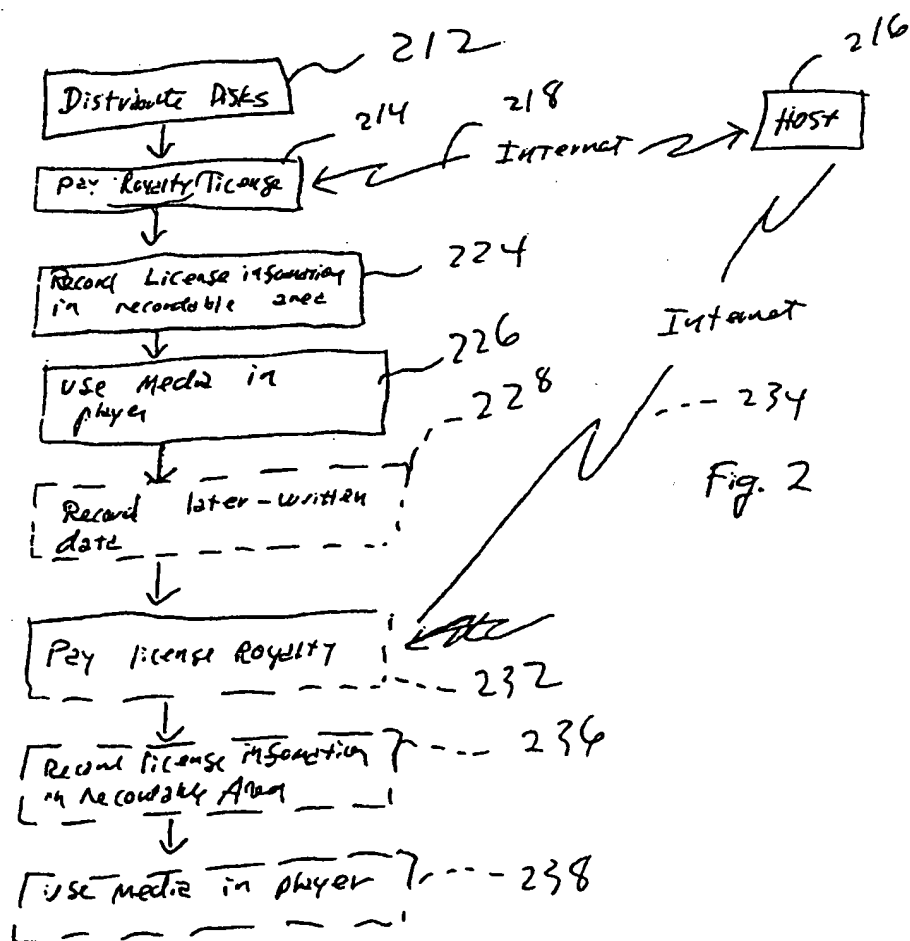 212
216
Distribute Disks
214
218
Internet
Host
Pay Royalty License
224
Record License information
in recordable area
Internet
226
Use Media in
player
228
234
Fig. 2
Record later-written
date
Pay license Royalty
232
236
Record license information
in recordable Area
Use media in player
238